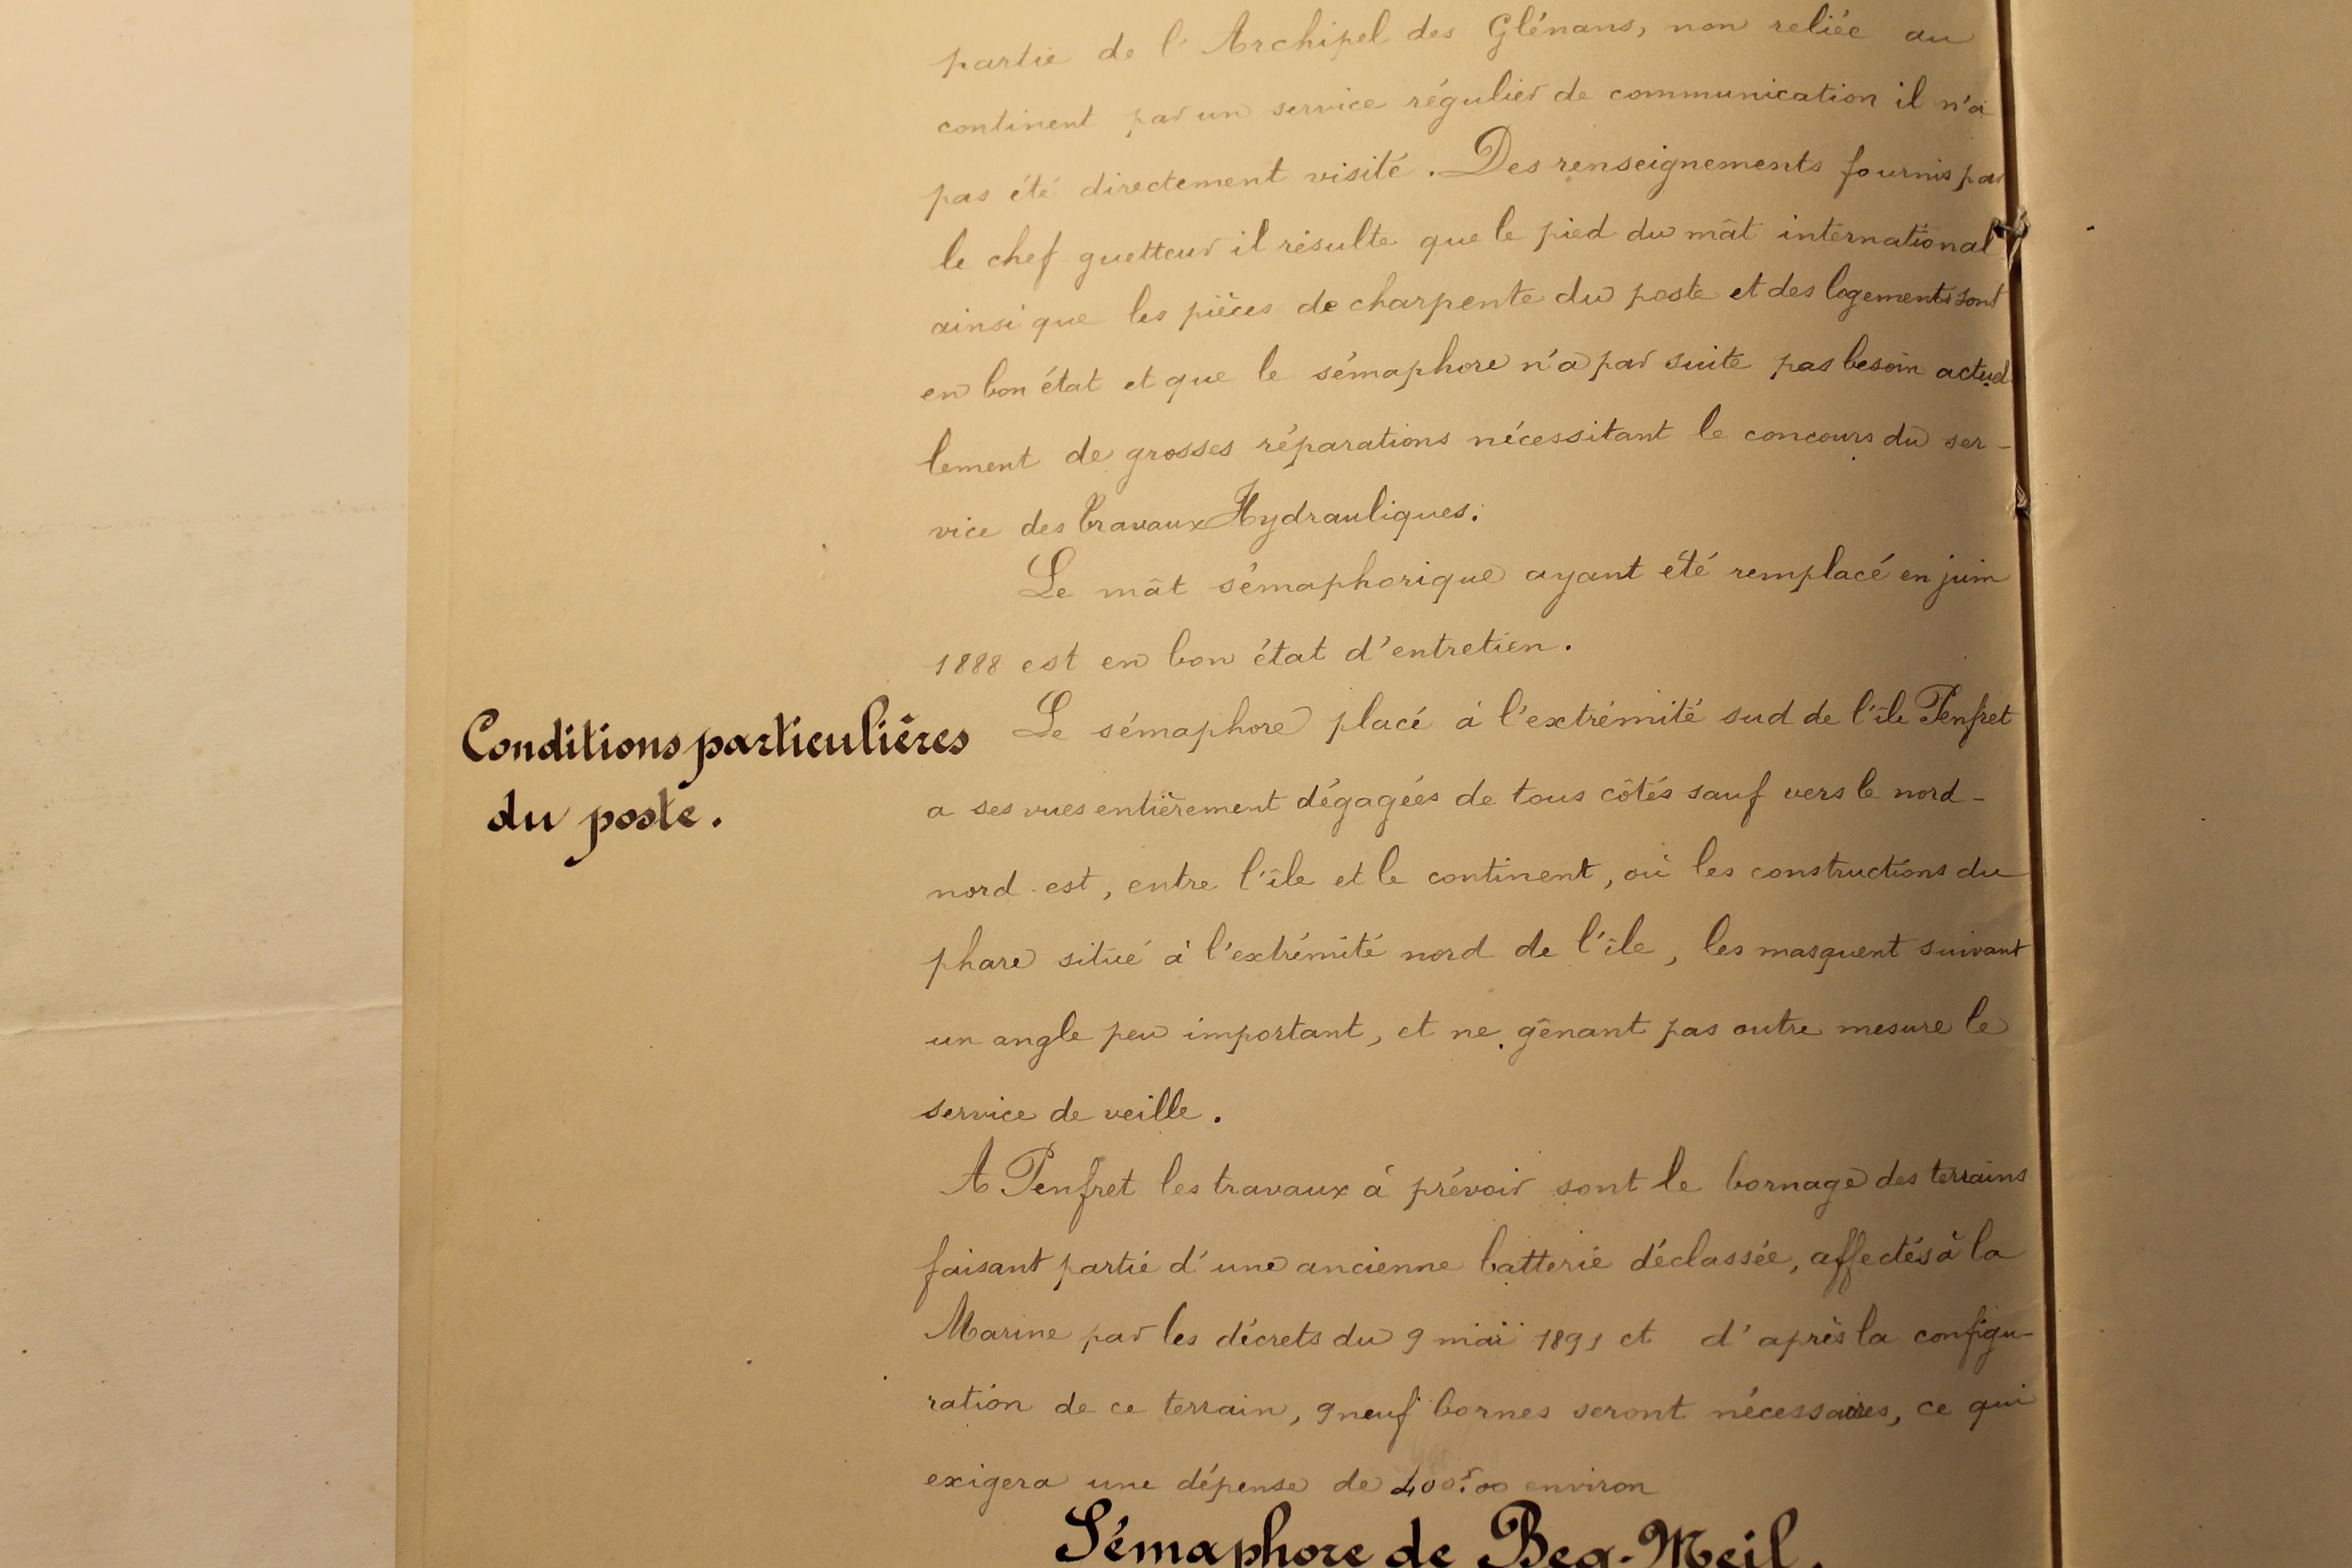 partie de l'Archipel des Glénans, non reliée au
continent par un service régulier de communication il n'a
pas été directement visité. Des renseignements fournis par
le chef guetteur il résulte que le pied du mât international
ainsi que les pièces de charpente du poste et des logements sont
en bon état et que le sémaphore n'a par suite pas besoin actuel
lement de grosses réparations nécessitant le concours du ser-
vice des Travaux Hydrauliques.
Le mât sémaphorique ayant été remplacé en juin
1888 est en bon état d'entretien.
Conditions particulières
du poste.
Le sémaphore placé à l'extrémité sud de l'île Penfret
a ses vues entièrement dégagées de tous côtés sauf vers le nord-
nord-est, entre l'île et le continent, où les constructions du
phare situé à l'extrémité nord de l'île, les masquent suivant
un angle peu important, et ne gênant pas outre mesure le
service de veille.
A Penfret les travaux à prévoir sont le bornage des terrains
faisant partie d'une ancienne batterie déclassée, affectés à la
Marine par les décrets du 9 mai 1891 et d'après la configu-
ration de ce terrain, 9 neuf bornes seront nécessaires, ce qui
exigera une dépense de 400f.00 environ
Sémaphore de Beg-Meil.